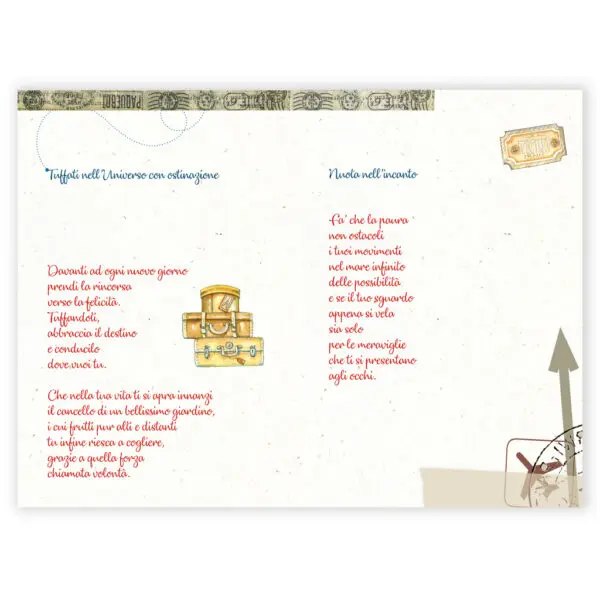 PAQUEBOT
Tuffati nell'Universo con ostinazione
Davanti ad ogni nuovo giorno
prendi la rincorsa
verso la felicità.
Tuffandoti,
abbraccia il destino
e conducilo
dove vuoi tu.
Che nella tua vita ti si apra innanzi
il cancello di un bellissimo giardino,
i cui frutti pur alti e distanti
tu infine riesca a cogliere,
grazie a quella forza
chiamata volontà.
Nuota nell'incanto
Fa' che la paura
non ostacoli
i tuoi movimenti
nel mare infinito
delle possibilità
e se il tuo sguardo
appena si vela
sia solo
per le meraviglie
che ti si presentano
agli occhi.